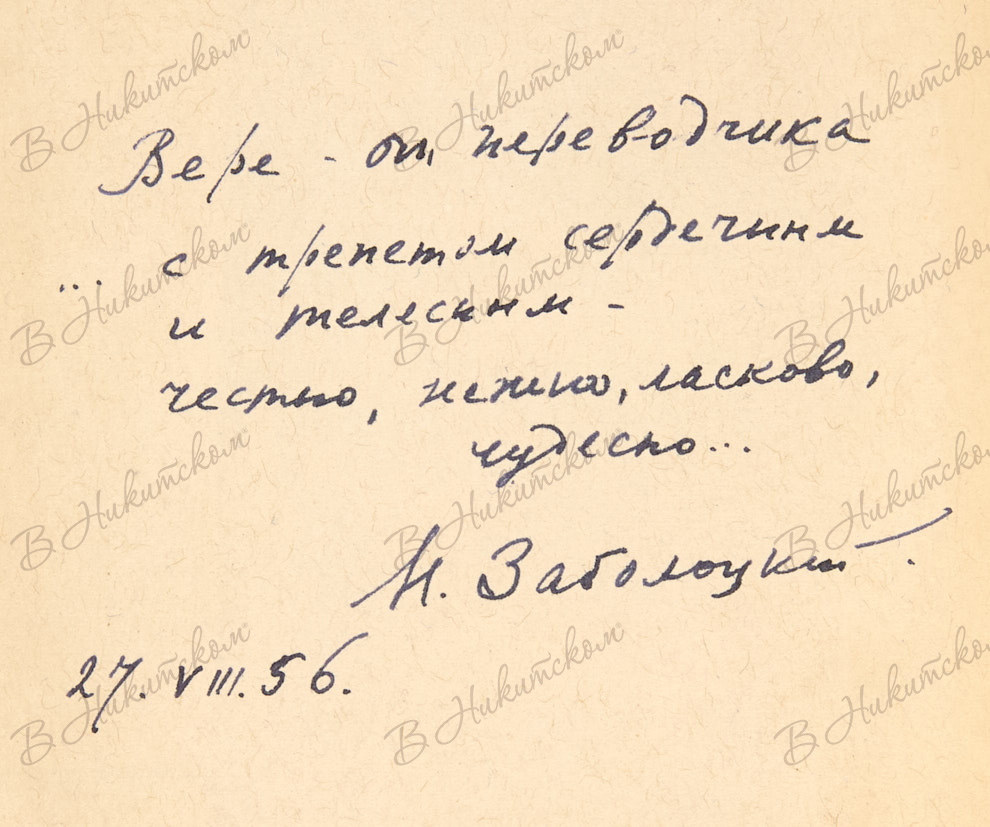 Вере - от переводчика
... с трепетом сердечным
и телесным -
честью, нежно, ласково,
чудесно...
Н. Заболоцкий.
27. VIII. 56.
В Никитском